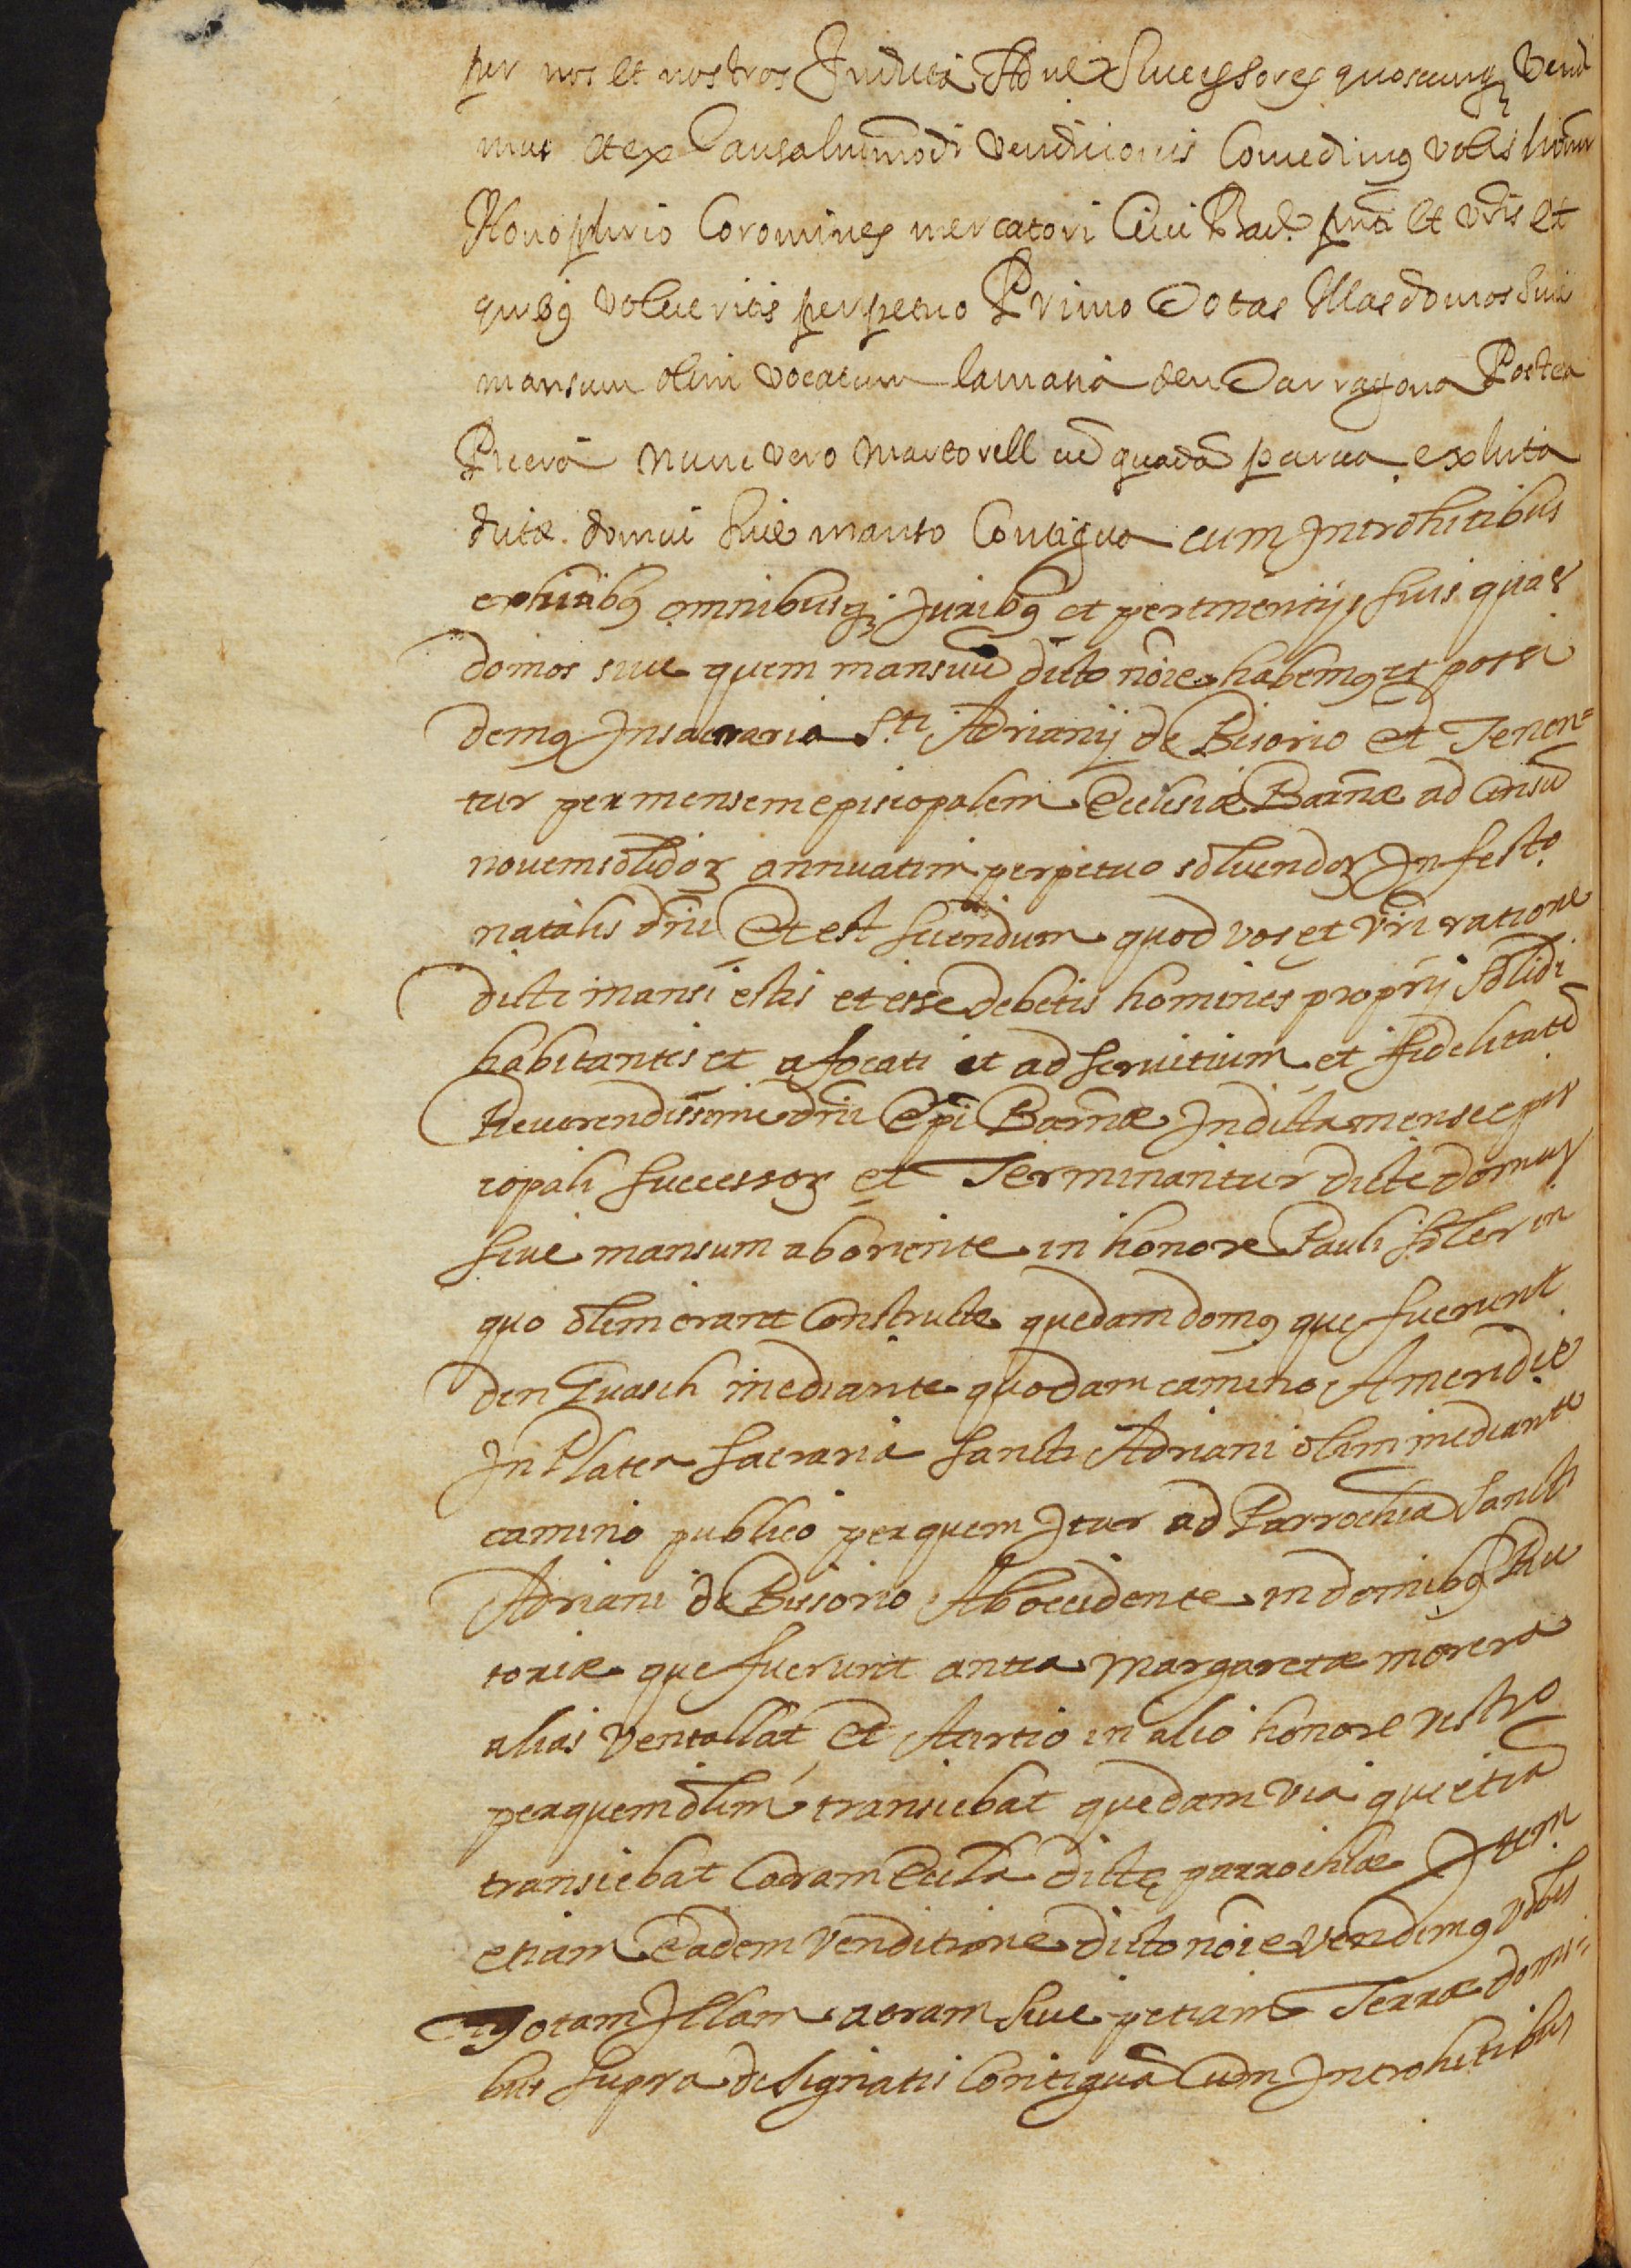 per nos et nostros In dicta Successores quoscunq; vend
mus et ex Causa huiusmodi vendicionis Concedimus vobis
Honophrio Coromines mercatori Civi Bar. pnti et vris et
quibus volueritis perpetuo Primo Totas Illas domos sive
mansum olim vocatum la masia den Tarragona Postea
Riera nunc vero Martorell cũ quadã parva exhita
dictæ domui sive manso Contigua cum Introhitibus
exhitibus omnibusq; Juribus et pertinentijs suis quas
domos sive quem mansum dicto nõie habemus et possi
demus In sacraria Sti. Adrianij de Bisorio et Tenen=
tur per mensem episcopalem Ecclesiæ Barnæ ad Censũ
novem solidoꝝ annuatim perpetuo solvendoꝝ In festo
natalis dñi Et est sciendum quod vos et vri ratione
dicti mansi estis et esse debetis homines proprij solidi
habitantes et afocati et ad servitium et fidelitatẽ
Reverendissimi dñi Epi Barnæ In dicta mense epis
copali successoꝝ et Terminantur dicte domus
sive mansum ab oriente in honore Pauli soler in
quo olim erant Constructe quedam domus que fuerunt
den Guasch mediante quodam camino A meridie
In Platea sacraria sancti Adriani olim mediante
camino publico per quem Itur ad Parrochiã sancti
Adriani de Bisorio Ab occidente in domibus Rec
toriæ que fuerunt antea Margaretæ morera
alias Ventallat et A circio in alio honore vestro
per quem olim transiebat quedam via que etiã
transiebat Coram Eccla dictę parrochiæ Item
etiam Eadem venditione dicto nõie vendimus vobis
Totam Illam aeram sive petiam Terræ domi=
bus supra designatis Contiguã Cum Introhitibus